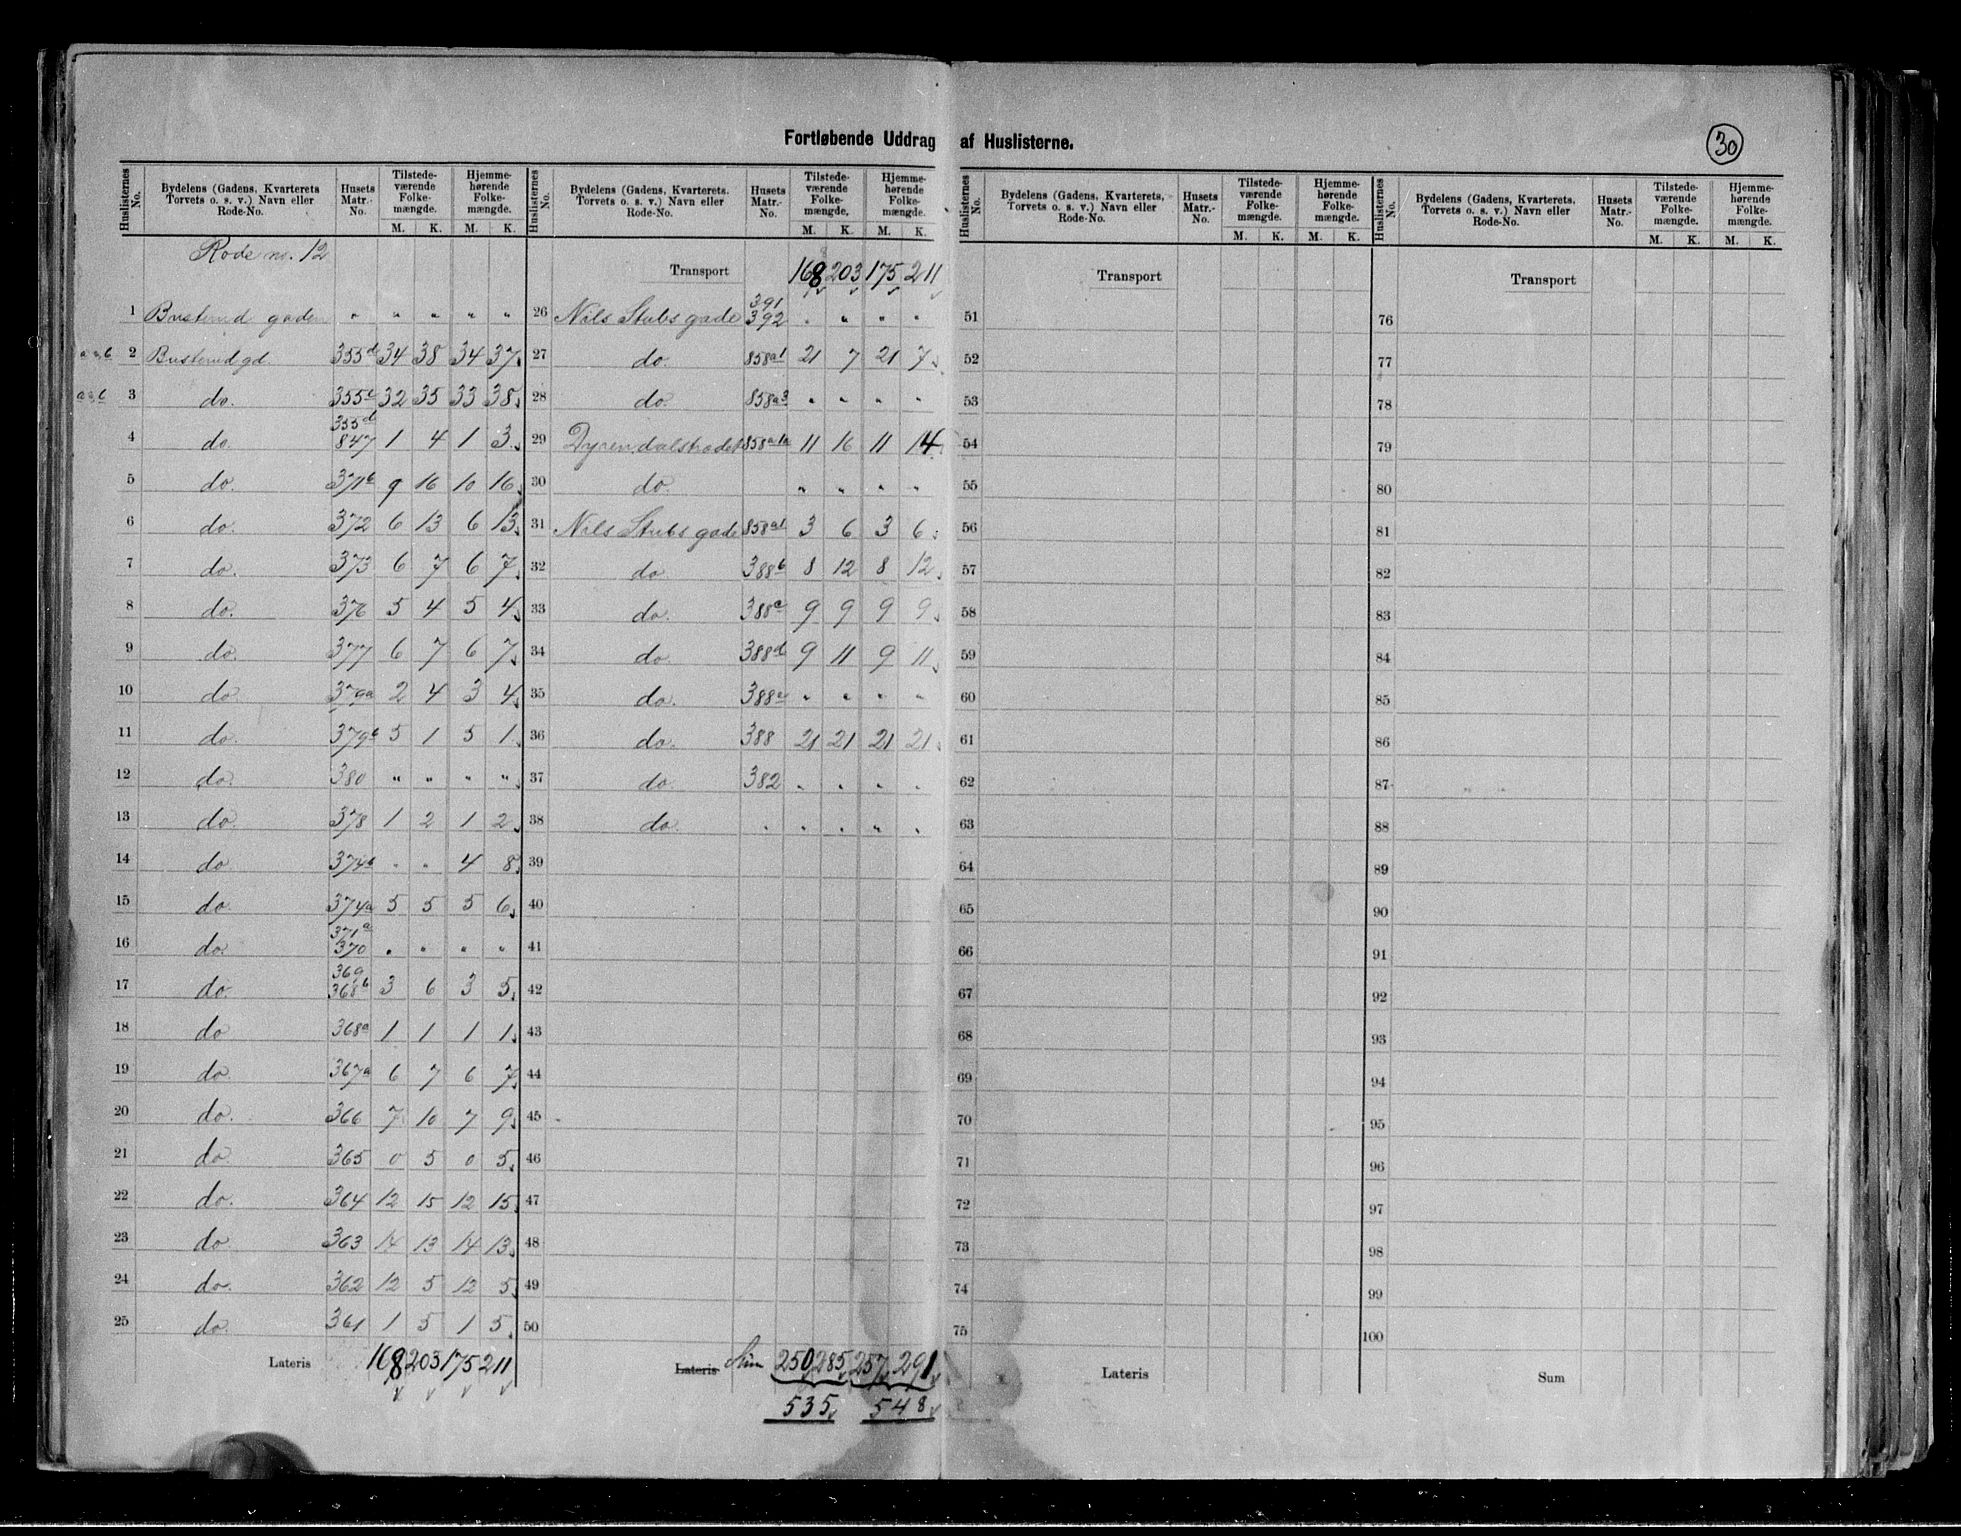 Fortløbende Uddrag af Huslisterne.
30
Huslisternes No. | Bydelens (Gadens, Kvarterets Torvets o. s. v.) Navn eller Rode-No. | Husets Matr.-No. | Tilstedeværende Folkemængde. M. K. | Hjemmehørende Folkemængde. M. K.
Rode no. 12
1 Busterud gaden " " " " "
2 Busterudgd. 355d 34 38 34 37
3 do. 355c 32 35 33 38
4 do. 355d 847 1 4 1 3
5 do. 371b 9 16 10 16
6 do. 372 6 13 6 13
7 do. 373 6 7 6 7
8 do. 376 5 4 5 4
9 do. 377 6 7 6 7
10 do. 379a 2 4 3 4
11 do. 379b 5 1 5 1
12 do. 380 " " " "
13 do. 378 1 2 1 2
14 do 374b " " 4 8
15 do. 374a 5 5 5 6
16 do. 371a 370 " " " "
17 do. 369 368b 3 6 3 5
18 do 368a 1 1 1 1
19 do. 367a 6 7 6 7
20 do. 366 7 10 7 9
21 do. 365 0 5 0 5
22 do. 364 12 15 12 15
23 do 363 14 13 14 13
24 do. 362 12 5 12 5
25 do. 361 1 5 1 5
Lateris 168 203 175 211
Huslisternes No. | Bydelens (Gadens, Kvarterets. Torvets o. s. v.) Navn eller Rode-No. | Husets Matr.-No. | Tilstedeværende Folkemængde. M. K. | Hjemmehørende Folkemængde. M. K.
Transport 168 203 175 211
26 Nils Stubs gade 391 392 " " " "
27 do. 858a1 21 7 21 7
28 do. 858a3 " " " "
29 858a1a 11 16 11 14
30 do. " " " "
31 Nils Stubs gade 858a1 3 6 3 6
32 do 388b 8 12 8 12
33 do. 388c 9 9 9 9
34 do. 388d 9 11 9 11
35 do. 388a " " " "
36 do. 388 21 21 21 21
37 do. 382 " " " "
38 do. " " " " "
39
40
41
42
43
44
45
46
47
48
49
50
Lateris 250 285 257 291
535 548
Huslisternes No. | Bydelens (Gadens, Kvarterets, Torvets o. s. v.) Navn eller Rode-No. | Husets Matr.-No. | Tilstedeværende Folkemængde. M. K. | Hjemmehørende Folkemængde. M. K.
Transport
51
52
53
54
55
56
57
58
59
60
61
62
63
64
65
66
67
68
69
70
71
72
73
74
75
Lateris
Huslisternes No. | Bydelens (Gadens, Kvarterets, Torvets o. s. v.) Navn eller Rode-No. | Husets Matr.-No. | Tilstedeværende Folkemængde. M. K. | Hjemmehørende Folkemængde. M. K.
Transport
76
77
78
79
80
81
82
83
84
85
86
87
88
89
90
91
92
93
94
95
96
97
98
99
100
Sum